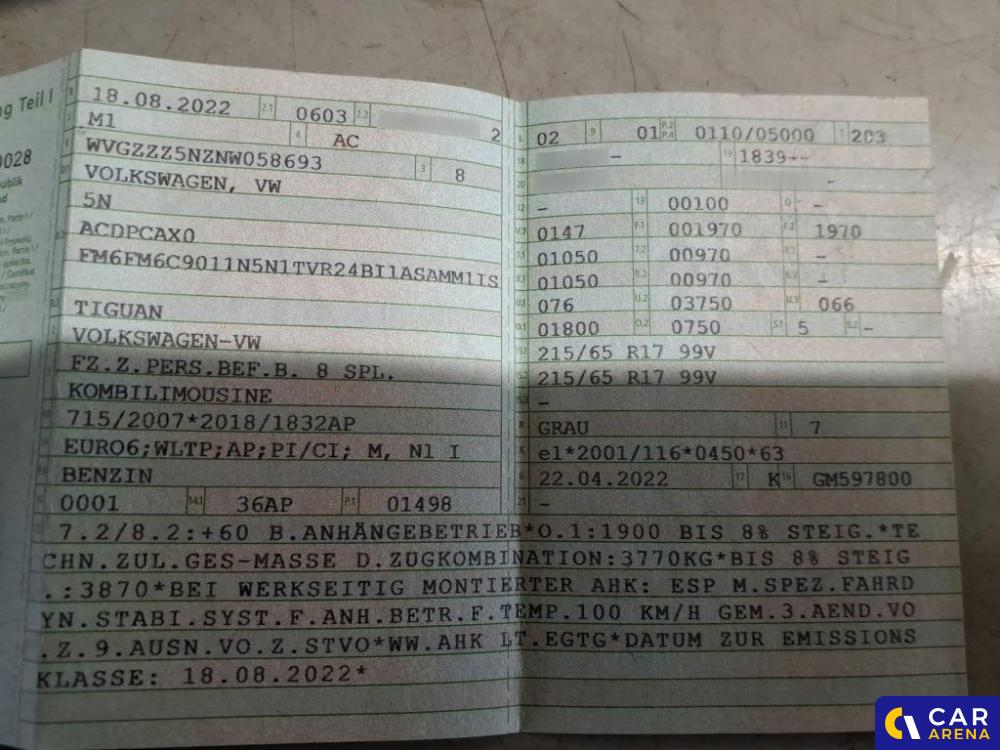 ng Teil I
0028
18.08.2022 2.1 0603 2.2 2
M1 4 AC
WVGZZZ5NZNW058693 3 8
VOLKSWAGEN, VW
5N
ACDPCAX0
FM6FM6C9011N5N1TVR24BI1ASAMM1IS
TIGUAN
VOLKSWAGEN-VW
FZ.Z.PERS.BEF.B. 8 SPL.
KOMBILIMOUSINE
715/2007*2018/1832AP
EURO6;WLTP;AP;PI/CI; M, N1 I
BENZIN
0001 14.1 36AP P.1 01498
L 02 9 01 P.2 P.4 0110/05000 T 203
18 – 19 1839--
20 -
12 – 13 00100 Q – –
V.7 0147 F.1 001970 F.2 1970
7.1 01050 7.2 00970 7.3 –
8.1 01050 8.2 00970 8.3 –
U.1 076 U.2 03750 U.3 066
O.1 01800 O.2 0750 S.1 5 S.2 –
215/65 R17 99V
215/65 R17 99V
–
R GRAU 11 7
K e1*2001/116*0450*63
6 22.04.2022 17 K 16 GM597800
21 –
7.2/8.2:+60 B.ANHÄNGEBETRIEB*O.1:1900 BIS 8% STEIG.*TE
CHN.ZUL.GES-MASSE D.ZUGKOMBINATION:3770KG*BIS 8% STEIG
.:3870*BEI WERKSEITIG MONTIERTER AHK: ESP M.SPEZ.FAHRD
YN.STABI.SYST.F.ANH.BETR.F.TEMP.100 KM/H GEM.3.AEND.VO
.Z.9.AUSN.VO.Z.STVO*WW.AHK LT.EGTG*DATUM ZUR EMISSIONS
KLASSE: 18.08.2022*
CAR
ARENA